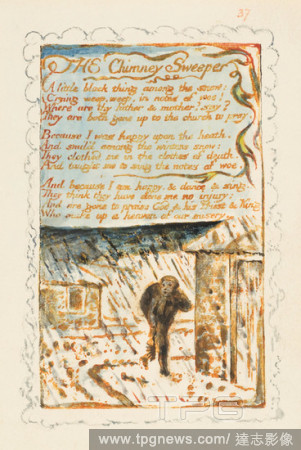 37
THE Chimney Sweeper
A little black thing among the snow:
Crying weep, weep, in notes of woe!
Where are thy father & mother? say?
They are both gone up to the church to pray.
Because I was happy upon the heath,
And smil'd among the winters snow:
They clothed me in the clothes of death,
And taught me to sing the notes of woe.
And because I am happy, & dance & sing,
They think they have done me no injury:
And are gone to praise God & his Priest & King
Who make up a heaven of our misery.
TPG
www.tpgnews.com/ 達志影像